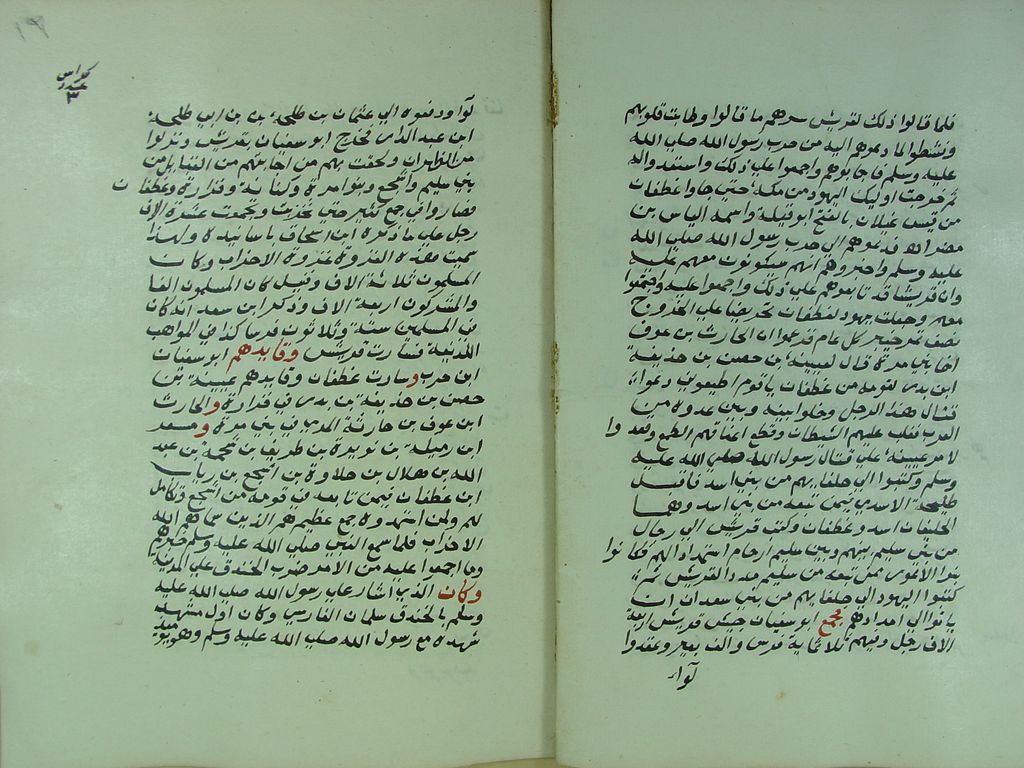 فلما قالوا ذلك لقريش سرهم ما قالوا وطابت قلوبهم
ونشطوا لما دعوهم اليه من حرب رسول الله صلي الله
عليه وسلم فاجابوهم واجمعوا علي ذلك واستعدوا له
ثم خرجت اوليك اليهود من مكة حتي جاوا غطفان
من قيس غيلان بالفتح ابو قبيلة واسمه الياس بن
مضر الاه فدعوهم الي حرب رسول الله صلي الله
عليه وسلم واخبروهم انهم سيكونون معهم عليه
وان قريشا قد تابعوهم علي ذلك واجمعوا عليه واجتمعوا
معهم وجعلت يهود لغطفان تحريضا علي الخروج
نصف تمر خيبر كل عام فزعموا ان الحارث بن عوف
اخا بني مرة قال لعيينة بن حصن بن حذيفة
ابن بدر ولقومه من غطفان يا قوم اطيعوني دعوا
قتال هذا الرجل وخلوا بينه وبين عدوه من
العرب فغلب عليهم الشيطان وقطع اعناقهم الطمع ونفذوا
لامر عيينة علي قتال رسول الله صلي الله عليه
وسلم وكتبوا الي حلفايهم من بني اسد فاقبل
طليحة الاسدي فيمن تبعه من بني اسد وهما
الحليفان اسد وغطفان وكتبت قريش الي رجال
من بني سليم بينهم وبين سليم ارحام استمدادا لهم فكانوا
بنوا الاعور بمن تبعه من سليم مددا لقريش ثم
كتبوا اليهود الي حلفايهم من بني سعد ان
ياتوا الي امدادهم فجمع ابو سفيان جيش قريش اربعة
الاف رجل وفيهم ثلاثماية فرس والف بعير وعقدوا
لوا
كراس
عدد
٣
لوا ودفعوه الي عثمان بن طلحة بن بن ابي طلحة
ابن عبد الدار فخرج ابو سفيان بقريش ونزلوا
مر الظهران ولحقت بهم من اجابتهم من القبايل من
بني سليم واشجع وبنو امرة وكنانة وفزارة وغطفان
فصاروا في جمع كثير حتي تحزبت وتجمعت عشرة الاف
رجل علي ما ذكره ابن اسحاق باسانيده ولهذا
سميت هذه الغزوة غزوة الاحزاب وكان
المسلمون ثلاثة الاف وقيل كان المسلمون الفا
والمشركون اربعة الاف وذكر ابن سعد انه كان
في المسلمين ستة وثلاثون فرسا كذا في المواهب
اللدنية فسارت قريش وقايدهم ابو سفيان
ابن حرب وسارت غطفان وقايدهم عيينة بن
حصن بن حذيفة بن بدر في فزارة والحارث
ابن عوف بن حارثة المري في بني مرة ومسعر
ابن رميلة بن نويرة بن طريف بن سحمة بن عبد
الله بن هلال بن خلاوة بن اشجع بن ريث
ابن غطفان فيمن تابعه من قومه من اشجع وتكامل
لهم ولمن استمدوه جمع عظيم هم الذين سماهم الله
الاحزاب فلما سمع النبي صلي الله عليه وسلم خبرهم
وما اجمعوا عليه من الامر ضرب الخندق علي المدينة
وكان الذي اشار علي رسول الله صلي الله عليه
وسلم بالخندق سلمان الفارسي وكان اول مشهد
شهده مع رسول الله صلي الله عليه وسلم وهو يوميذ